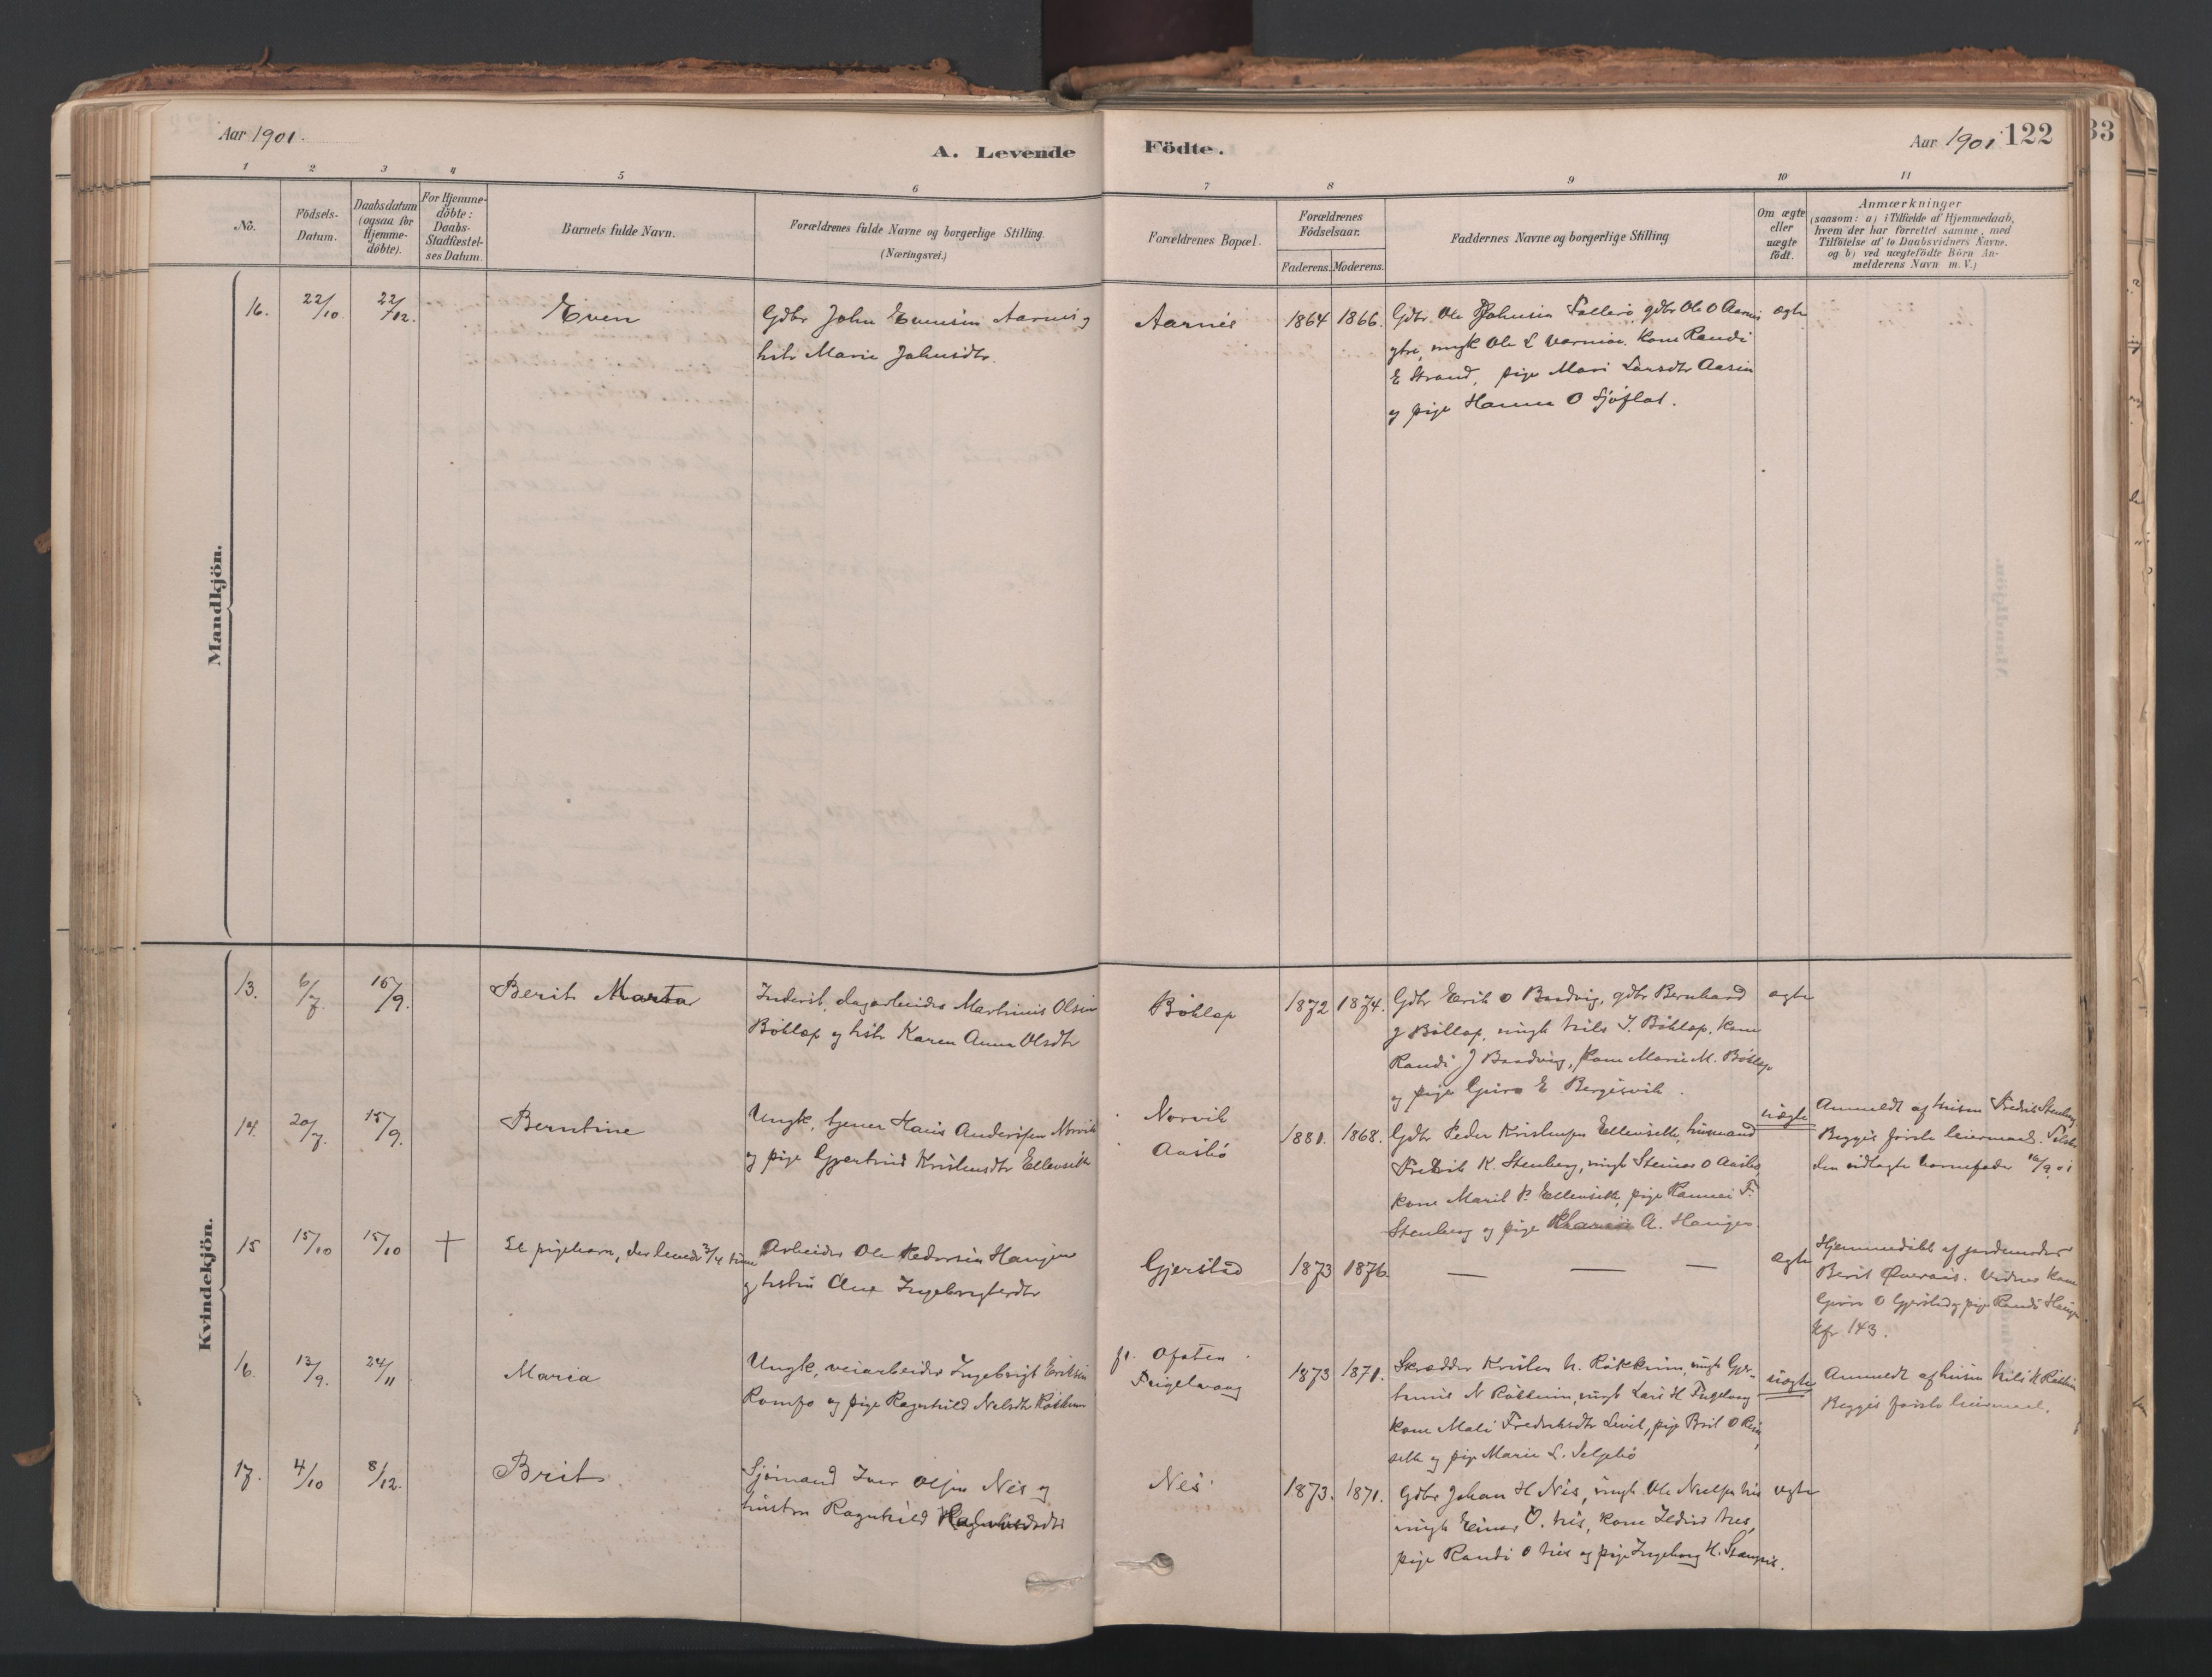 Aar 1901.
A. Levende
Födte.
Aar 1901
122
33
1 2 3 4 5 6 7 8 9 10 11
No.
Födsels-
Datum.
Daabsdatum
(ogsaa for
Hjemme-
döbte).
For Hjemme-
döbte:
Daabs-
Stadfæstel-
ses Datum.
Barnets fulde Navn.
Forældrenes fulde Navne og borgerlige Stilling.
(Næringsvei.)
Forældrenes Bopæl.
Forældrenes
Födselsaar.
Faderens. Moderens.
Faddernes Navne og borgerlige Stilling
Om ægte
eller
uægte
födt.
Anmærkninger
(saasom: a) i Tilfælde af Hjemmedaab,
hvem der har forrettet samme, med
Tilföielse af to Daabsvidners Navne.
og b) ved uægtefödte Börn An-
melderens Navn m. V.)
Mandkjön.
16. 22/10 22/12. Even
Gdbr John Evensen Aarnes og
hstr Marie Johnsdtr.
Aarnes
1864 1866.
Gdbr. Ole Johnsen gdbr Ole O Aarnes
ungk Ole L kone Randi
E Strand, pige Mari Larsdtr Aasen
og pige Hanna O Sjöflot.
ægte
Kvindekjön.
13. 6/7. 15/9. Berit Marta
Inderst, dagarbeider Martinus Olsen
Böhlep og hstr Karen Anna Olsdtr
Böhlep
1872 1874.
Gdbr Erik O Baadvig, gdbr Bernhard
J Böhlep, ungk Nils J. Böhlep, kone
Randi J Baadvig, kone Marie M. Böhlep
og pige Guro E Bergisvik.
ægte
14. 20/7. 15/9. Berntine
Ungk, tjener Hans Anderssen Norvik
og pige Gjertrud Kristensdtr Ellenseth
Norvik
Aasbö
1881. 1868.
Gdbr Peder Kristensen Ellenseth, husmand
Fredrik K. Stenberg, ungk Steinar O Aasbö,
kone Marit P. Ellenseth, pige F.
Stenberg og pige A. Haugen.
uægte
Anmeldt af husm Fredrik Stenberg
Begges förste leiermaal.
den udlagte barnefader 16/9 01
15 15/10 15/10 †
Et pigebarn, der levede 3/4 time
Arbeider Ole Pedersen Haugen
og hustru Ane Ingebrigtsdtr
Gjerstad
1873 1876.
— — —
ægte
Hjemmedöbt af jordemoder
Berit Överaas. Vidner kone
Guro O Gjerstad og pige Randi Haugen
Kfr. 143.
16. 13/9. 24/11 Maria
Ungk, veiarbeider Ingebrigt Eriksen
Romfo og pige Ragnhild Nilsdtr
f. Ofoten.
Fugelvaag
1873 1871.
Skrædder Kristen N. ungk Gjer-
ungk Lars H Fugelvaag
kone Mali Fredriksdtr pige Brit O
og pige Marie L. Seljebö
uægte
Anmeldt af husm Nils K
Begges förste leiermaal.
17. 4/10 8/12. Brit
Sjömand Iver Olsen Nes og
hustru Ragnhild
Nes
1873. 1871.
Gdbr Johan H Nes, ungk Ole Nielsen Nes
ungk Einar O. Nes, kone Nes,
pige Randi O Nes og pige Ingeborg H.
ægte